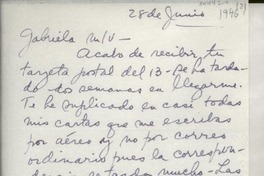 28 de Junio 1946
Gabriela M/V-
Acabo de recibir tu
targeta postal del 13- se ha tarda-
do dos semanas en llegarme.
Te he suplicado en casi todas
mis cartas que me escribas
por aéreo y no por correo
ordinario pues la correspon-
dencia tarda mucho- Las